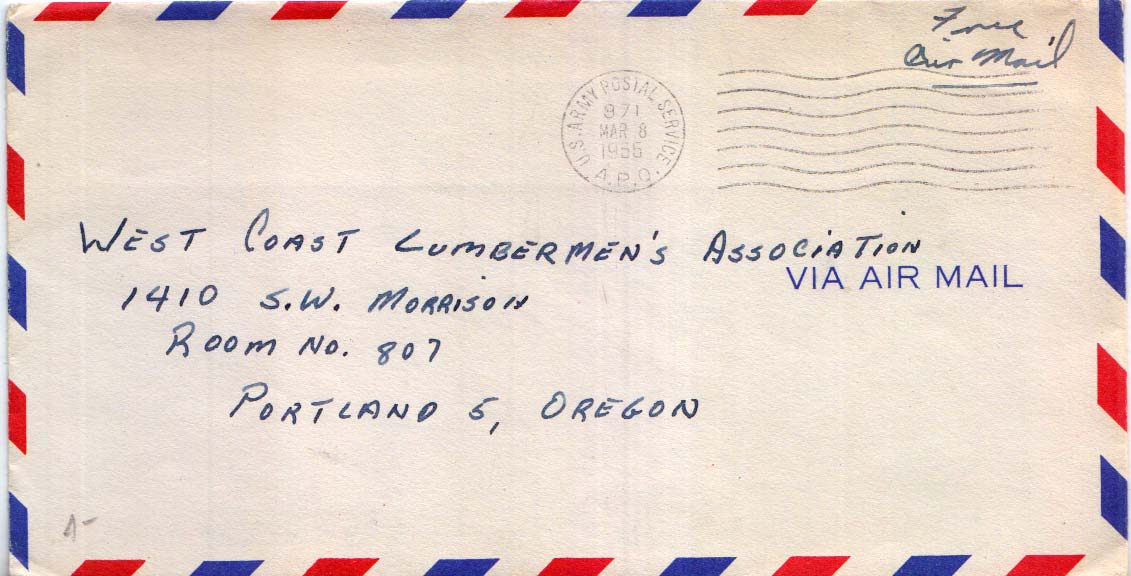 Free
Air Mail
U.S. ARMY POSTAL SERVICE
871
MAR 8
1955
A.P.O.
WEST COAST LUMBERMEN'S ASSOCIATION
VIA AIR MAIL
1410 S.W. MORRISON
ROOM NO. 807
PORTLAND 5, OREGON